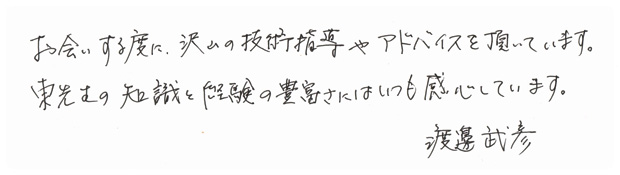 お会いする度に、沢山の技術指導やアドバイスを頂いています。
東先生の知識と経験の豊富さにはいつも感心しています。
渡邊武彦